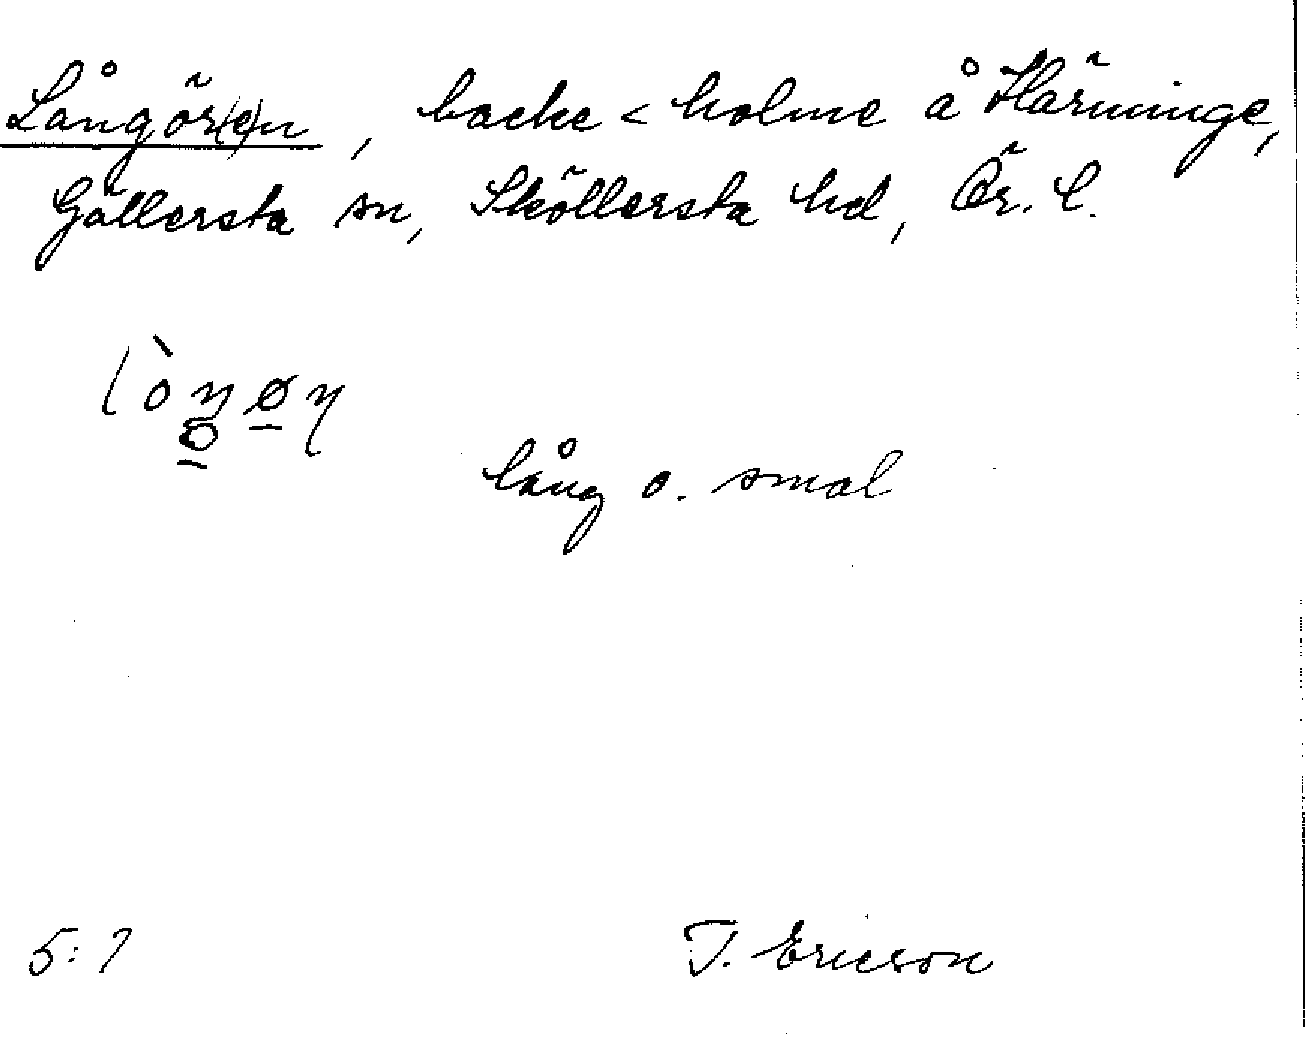 Långör(e)n, backe < holme å Härminge,
Gällersta sn, Sköllersta hd, Ör. l.
lång o. smal
5:7
T. Ericson